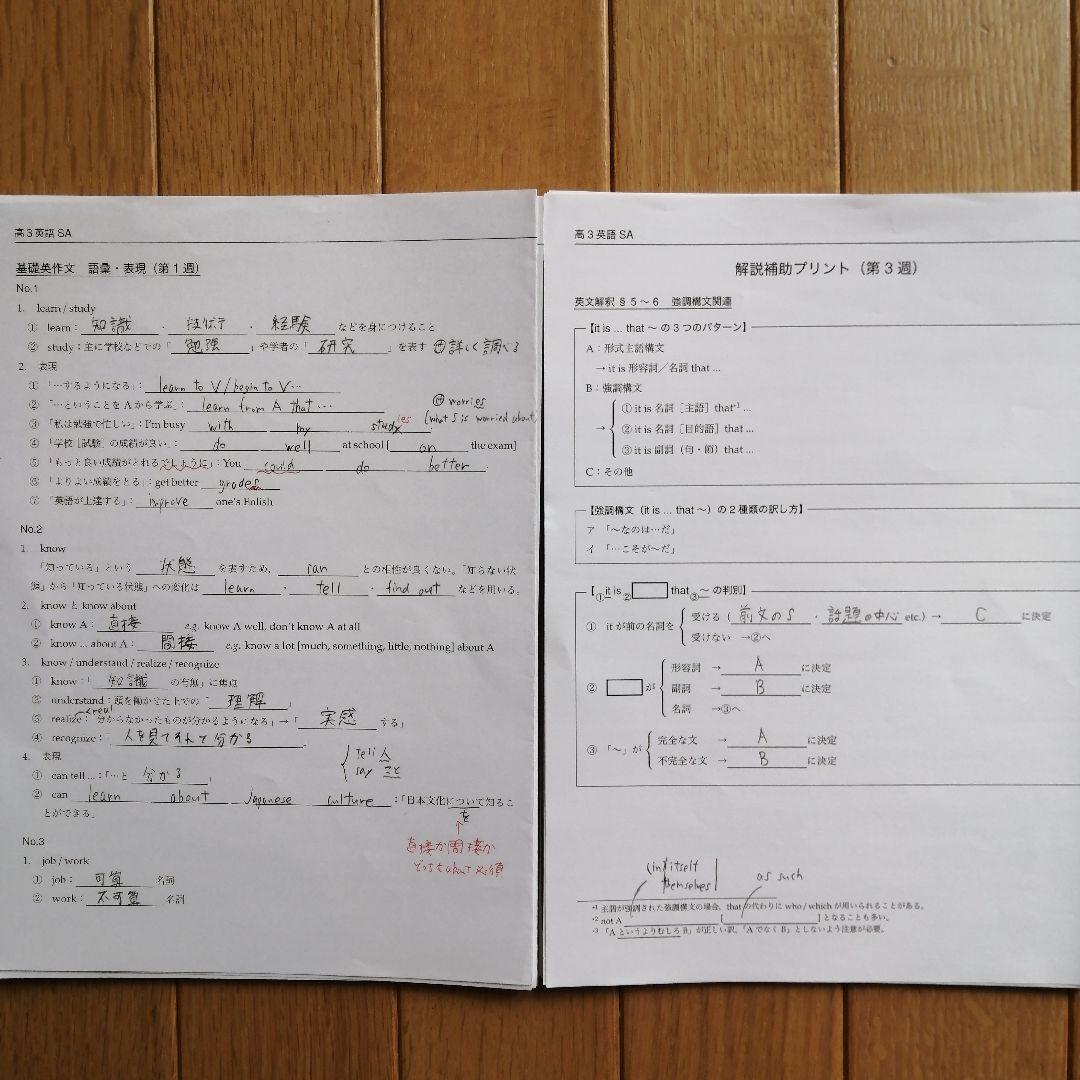 高3英語 SA
基礎英作文 語彙・表現（第1週）
No.1
1. learn / study
① learn： 知識 ・ 技術 ・ 経験 などを身につけること
② study：主に学校などでの「 勉強 」や学者の「 研究 」を表す 詳しく調べる
2. 表現
① 「…するようになる」： learn to V / begin to V…
② 「…ということを A から学ぶ」： learn from A that …
worries
(what S is worried about
③ 「私は勉強で忙しい」：I'm busy with my studies
④ 「学校［試験］の成績が良い」： do well at school [ on the exam]
⑤ 「もっと良い成績がとれるでしょうに」：You could do better
⑥ 「よりよい成績をとる」：get better grades
⑦ 「英語が上達する」： improve one's Enlish
No.2
1. know
「知っている」という 状態 を表すため， can との相性が良くない。「知らない状
態」から「知っている状態」への変化は learn ・ tell ・ find out などを用いる。
2. know と know about
① know A： 直接 e.g. know A well, don't know A at all
② know ... about A： 間接 e.g. know a lot [much, something, little, nothing] about A
3. know / understand / realize / recognize
① know：「 知識 の有無」に焦点
② understand：頭を働かせた上での「 理解 」
③ realize：「分からなかったものが分かるようになる」→「 実感 する」
real
④ recognize： 人を見てそれと分かる
4. 表現
tell 人
say こと
① can tell ...：「…と 分かる 」
② can learn about Japanese culture ：「日本文化について知るこ
とができる」
を
↑
直接か間接か
どっちもabout必須
No.3
1. job / work
① job： 可算 名詞
② work： 不可算 名詞
高3英語 SA
解説補助プリント（第3週）
英文解釈 § 5 ～ 6 強調構文関連
【it is ... that ～ の3つのパターン】
A：形式主語構文
→ it is 形容詞／名詞 that ...
B：強調構文
① it is 名詞［主語］that*¹ ...
→ ② it is 名詞［目的語］that ...
③ it is 副詞（句・節）that ...
C：その他
【強調構文（it is ... that ～）の2種類の訳し方】
ア 「～なのは…だ」
イ 「…こそが～だ」
【①it is ② that ③～ の判別】
① it が前の名詞を 受ける（ 前文のS ・ 話題の中心 etc.）→ C に決定
受けない →②へ
② が 形容詞 → A に決定
副詞 → B に決定
名詞 →③へ
③ 「～」が 完全な文 → A に決定
不完全な文 → B に決定
(in) itself
themselves
as such
*1 主語が強調された強調構文の場合、that の代わりに who / which が用いられることがある。
*2 not A [ ] となることも多い。
*3 「A というよりむしろ B」が正しい訳。「A でなく B」としないよう注意が必要。